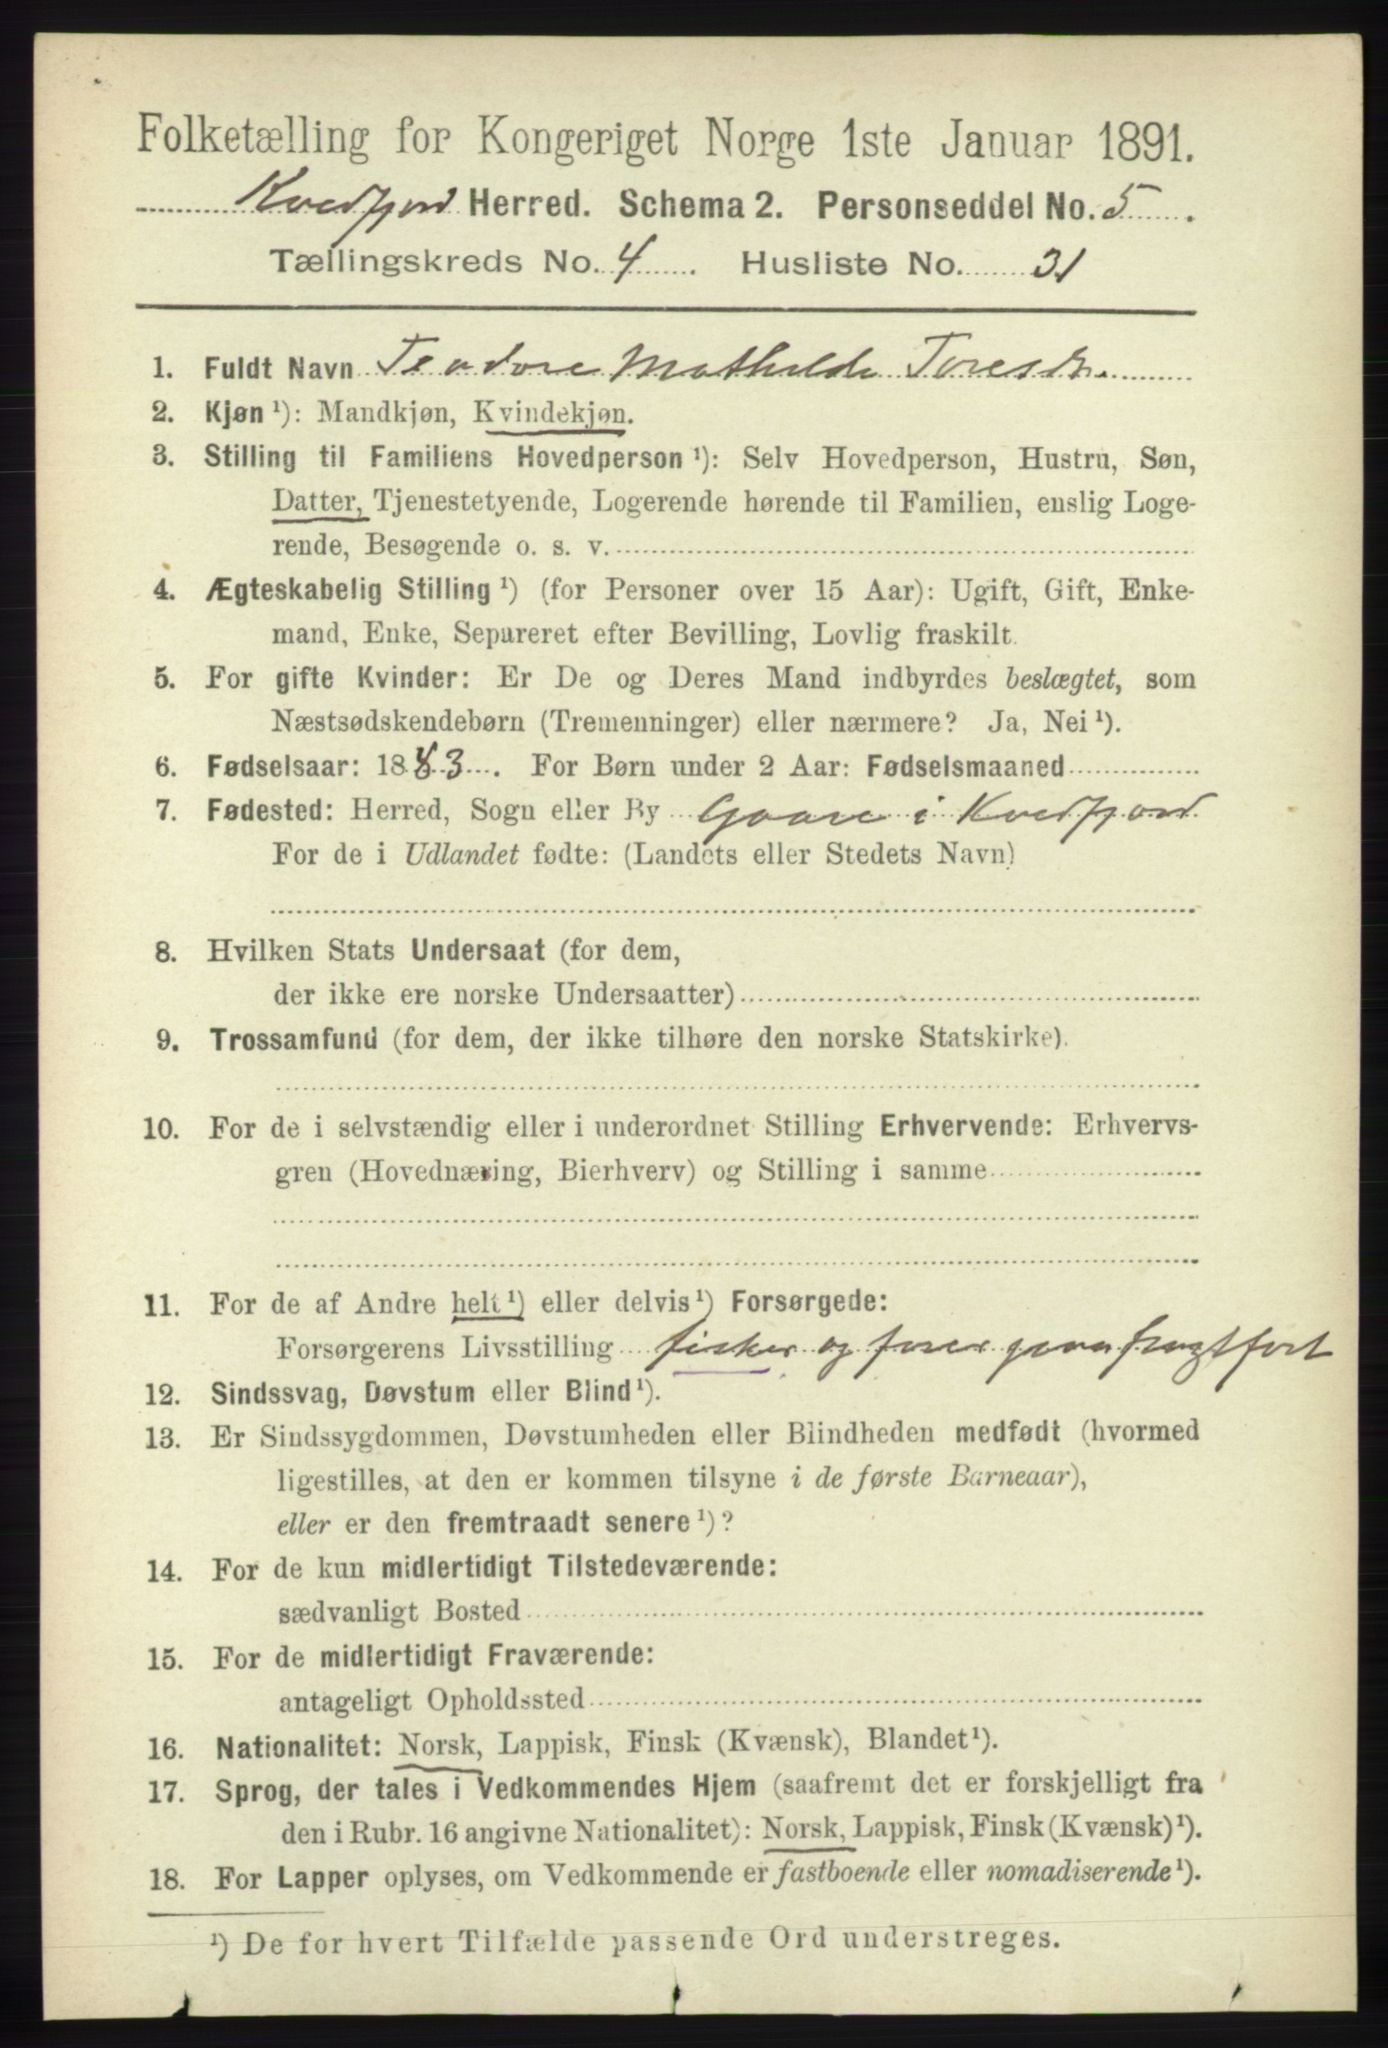 Folketælling for Kongeriget Norge 1ste Januar 1891.
Kvedfjord Herred. Schema 2. Personseddel No. 5.
Tællingskreds No. 4. Husliste No. 31
1. Fuldt Navn Teodore Mathilde
2. Kjøn ¹): Mandkjøn, Kvindekjøn.
3. Stilling til Familiens Hovedperson ¹): Selv Hovedperson, Hustru, Søn,
Datter, Tjenestetyende, Logerende hørende til Familien, enslig Loge-
rende, Besøgende o. s. v.
4. Ægteskabelig Stilling ¹) (for Personer over 15 Aar): Ugift, Gift, Enke-
mand, Enke, Separeret efter Bevilling, Lovlig fraskilt.
5. For gifte Kvinder: Er De og Deres Mand indbyrdes beslægtet, som
Næstsødskendebørn (Tremenninger) eller nærmere? Ja, Nei ¹).
6. Fødselsaar: 1883. For Børn under 2 Aar: Fødselsmaaned
7. Fødested: Herred, Sogn eller By Gaare i Kvedfjord
For de i Udlandet fødte: (Landets eller Stedets Navn)
8. Hvilken Stats Undersaat (for dem,
der ikke ere norske Undersaatter)
9. Trossamfund (for dem, der ikke tilhøre den norske Statskirke).
10. For de i selvstændig eller i underordnet Stilling Erhvervende: Erhvervs-
gren (Hovednæring, Bierhverv) og Stilling i samme
11. For de af Andre helt ¹) eller delvis ¹) Forsørgede:
Forsørgerens Livsstilling fisker og fører
12. Sindssvag, Døvstum eller Blind ¹).
13. Er Sindssygdommen, Døvstumheden eller Blindheden medfødt (hvormed
ligestilles, at den er kommen tilsyne i de første Barneaar),
eller er den fremtraadt senere ¹)?
14. For de kun midlertidigt Tilstedeværende:
sædvanligt Bosted
15. For de midlertidigt Fraværende:
antageligt Opholdssted
16. Nationalitet: Norsk, Lappisk, Finsk (Kvænsk), Blandet ¹).
17. Sprog, der tales i Vedkommendes Hjem (saafremt det er forskjelligt fra
den i Rubr. 16 angivne Nationalitet): Norsk, Lappisk, Finsk (Kvænsk) ¹).
18. For Lapper oplyses, om Vedkommende er fastboende eller nomadiserende ¹).
¹) De for hvert Tilfælde passende Ord understreges.